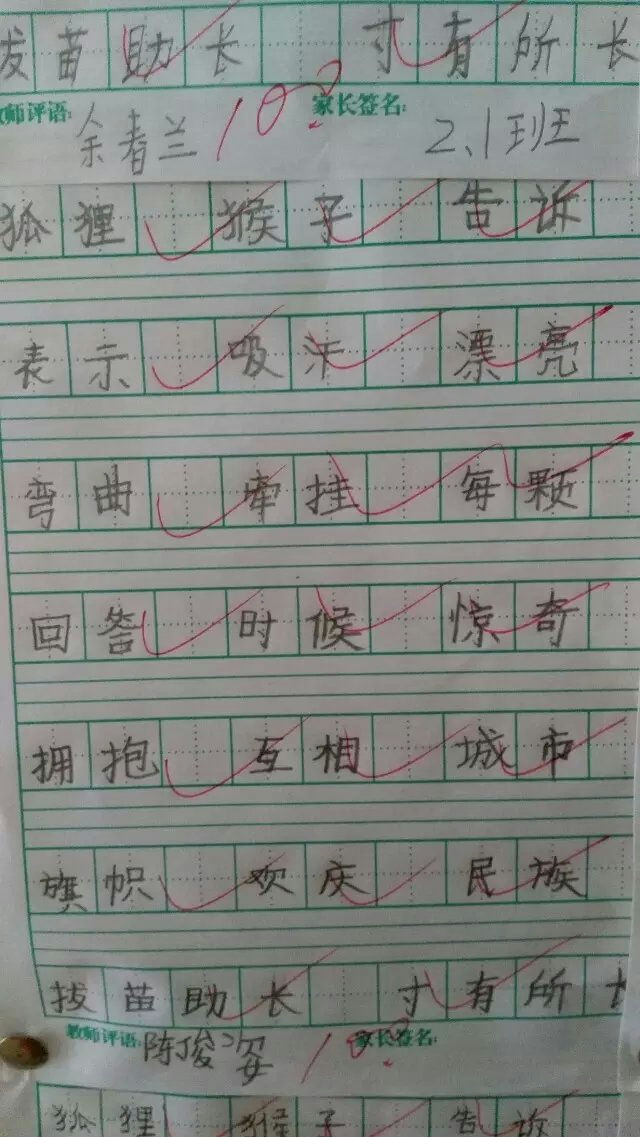 拔苗助长 寸有所长
教师评语: 余春兰 100 家长签名: 2.1班
狐狸 猴子 告诉
表示 吸汗 漂亮
弯曲 牵挂 每颗
回答 时候 惊奇
拥抱 互相 城市
旗帜 欢庆 民族
拔苗助长 寸有所长
教师评语: 陈俊 100 家长签名:
狐狸 猴子 告诉